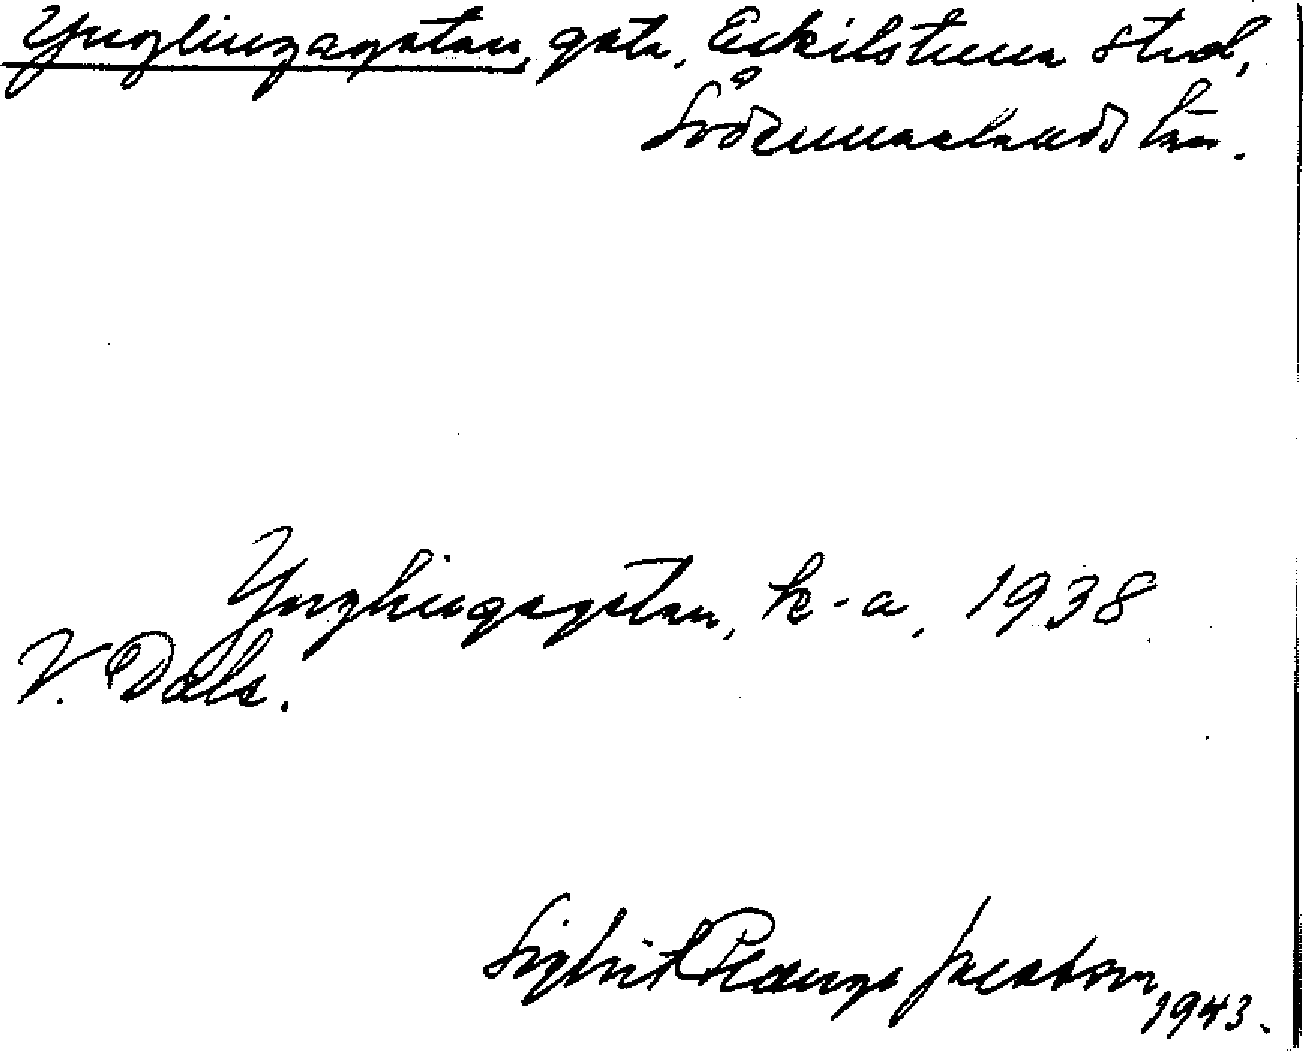 Ynglingagatan, gata, Eskilstuna stad,
Södermanlands län.
Ynglingagatan, k-a, 1938
V. Dals.
Sigbrit Plænge Jacobson
1943.